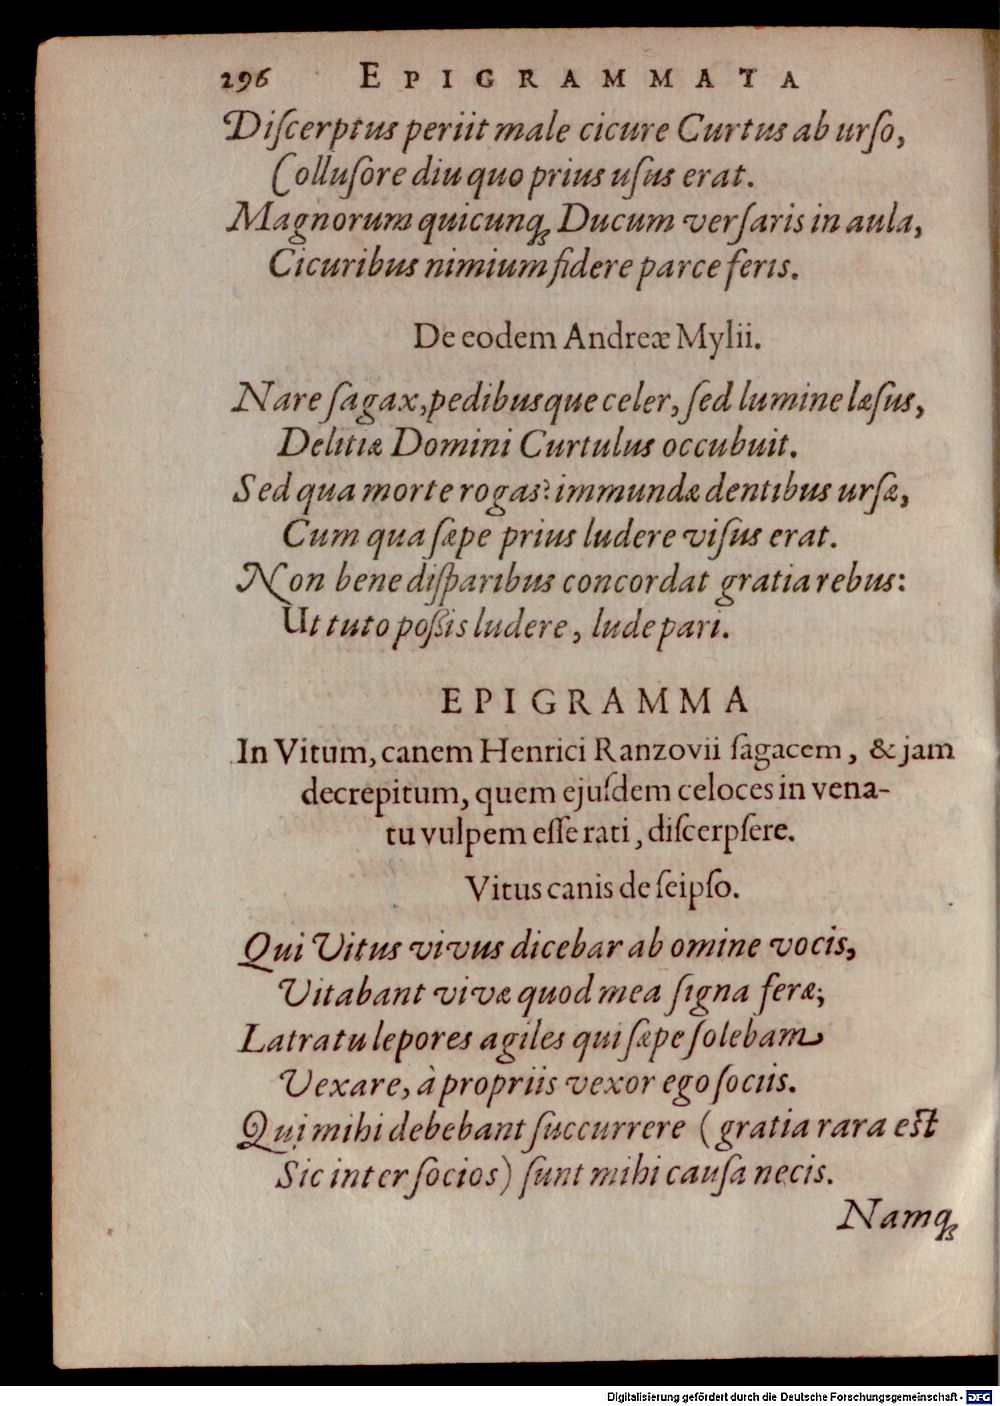 296 EPIGRAMMATA
Diſcerptus periit male cicure Curtus ab urſo,
Colluſore diu quo prius uſus erat.
Magnorum quicunq́ꝫ Ducum verſaris in aula,
Cicuribus nimium fidere parce feris.
De eodem Andreæ Mylii.
Nare ſagax, pedibusque celer, ſed lumine læſus,
Delitiæ Domini Curtulus occubuit.
Sed qua morte rogas? immundæ dentibus urſæ,
Cum qua ſæpe prius ludere viſus erat.
Non bene diſparibus concordat gratia rebus:
Ut tuto poßis ludere, lude pari.
EPIGRAMMA
In Vitum, canem Henrici Ranzovii ſagacem, & jam
decrepitum, quem ejuſdem celoces in vena-
tu vulpem eſſe rati, diſcerpſere.
Vitus canis de ſeipſo.
Qui Vitus vivus dicebar ab omine vocis,
Vitabant vivæ quod mea ſigna feræ;
Latratu lepores agiles qui ſæpe ſolebam
Vexare, à propriis vexor ego ſociis.
Qui mihi debebant ſuccurrere (gratia rara eſt
Sic inter ſocios) ſunt mihi cauſa necis.
Namqꝫ
Digitalisierung gefördert durch die Deutsche Forschungsgemeinschaft - DFG